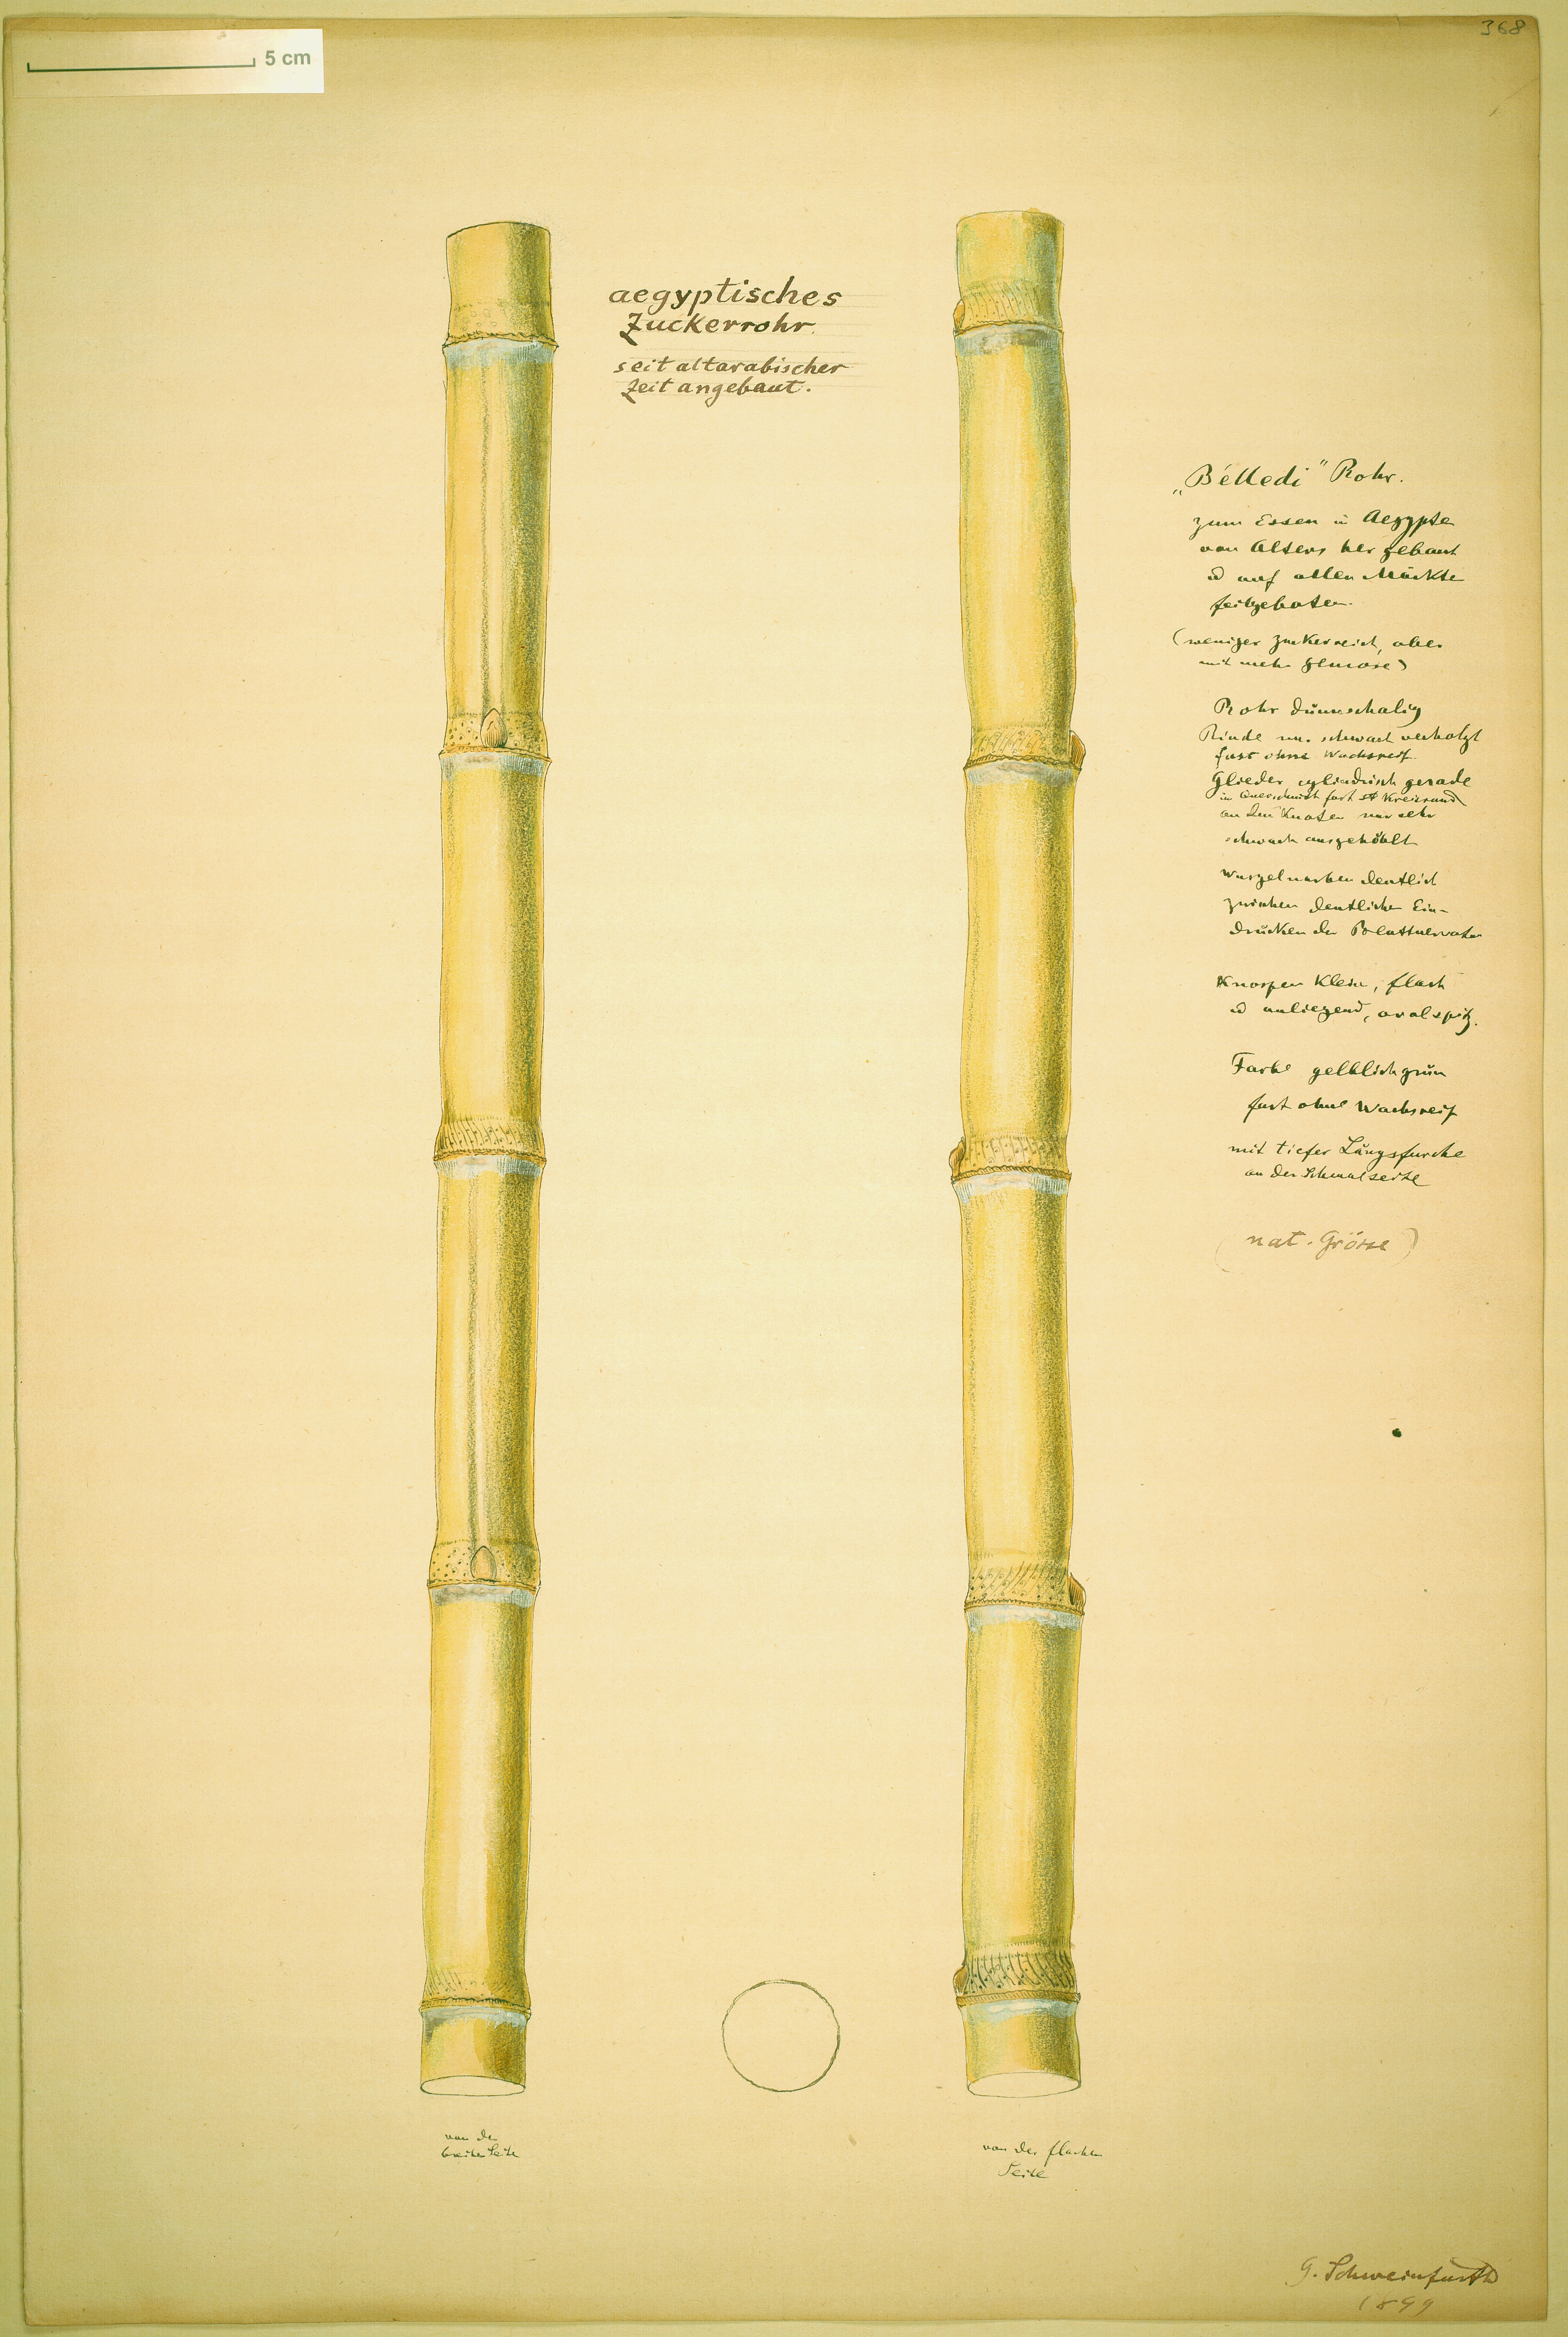 5 cm
368
aegyptisches
Zuckerrohr
seit altarabischer
Zeit angebaut.
„Bélledi" Rohr.
zum Essen in Aegypten
von Alters her gebaut
u auf allen Märkten
feilgeboten.
(weniger zuckerreich, aber
mit mehr Glucose)
Rohr dünnschalig
Rinde nur schwach verholzt
fast ohne Wachsreif.
Glieder cylindrisch gerade
im Querschnitt fast kreisrund
an den Knoten nur sehr
schwach ausgehöhlt
Wurzelnarben deutlich
zwischen deutlichen Ein-
drücken der Blattnervatur
Knospen klein, flach
u anliegend, oval spitz.
Farbe gelblichgrün
fast ohne Wachsreif
mit tiefer Längsfurche
an der Schmalseite
(nat. Grösse)
von der
breiten Seite
von der flachen
Seite
G. Schweinfurth
1899